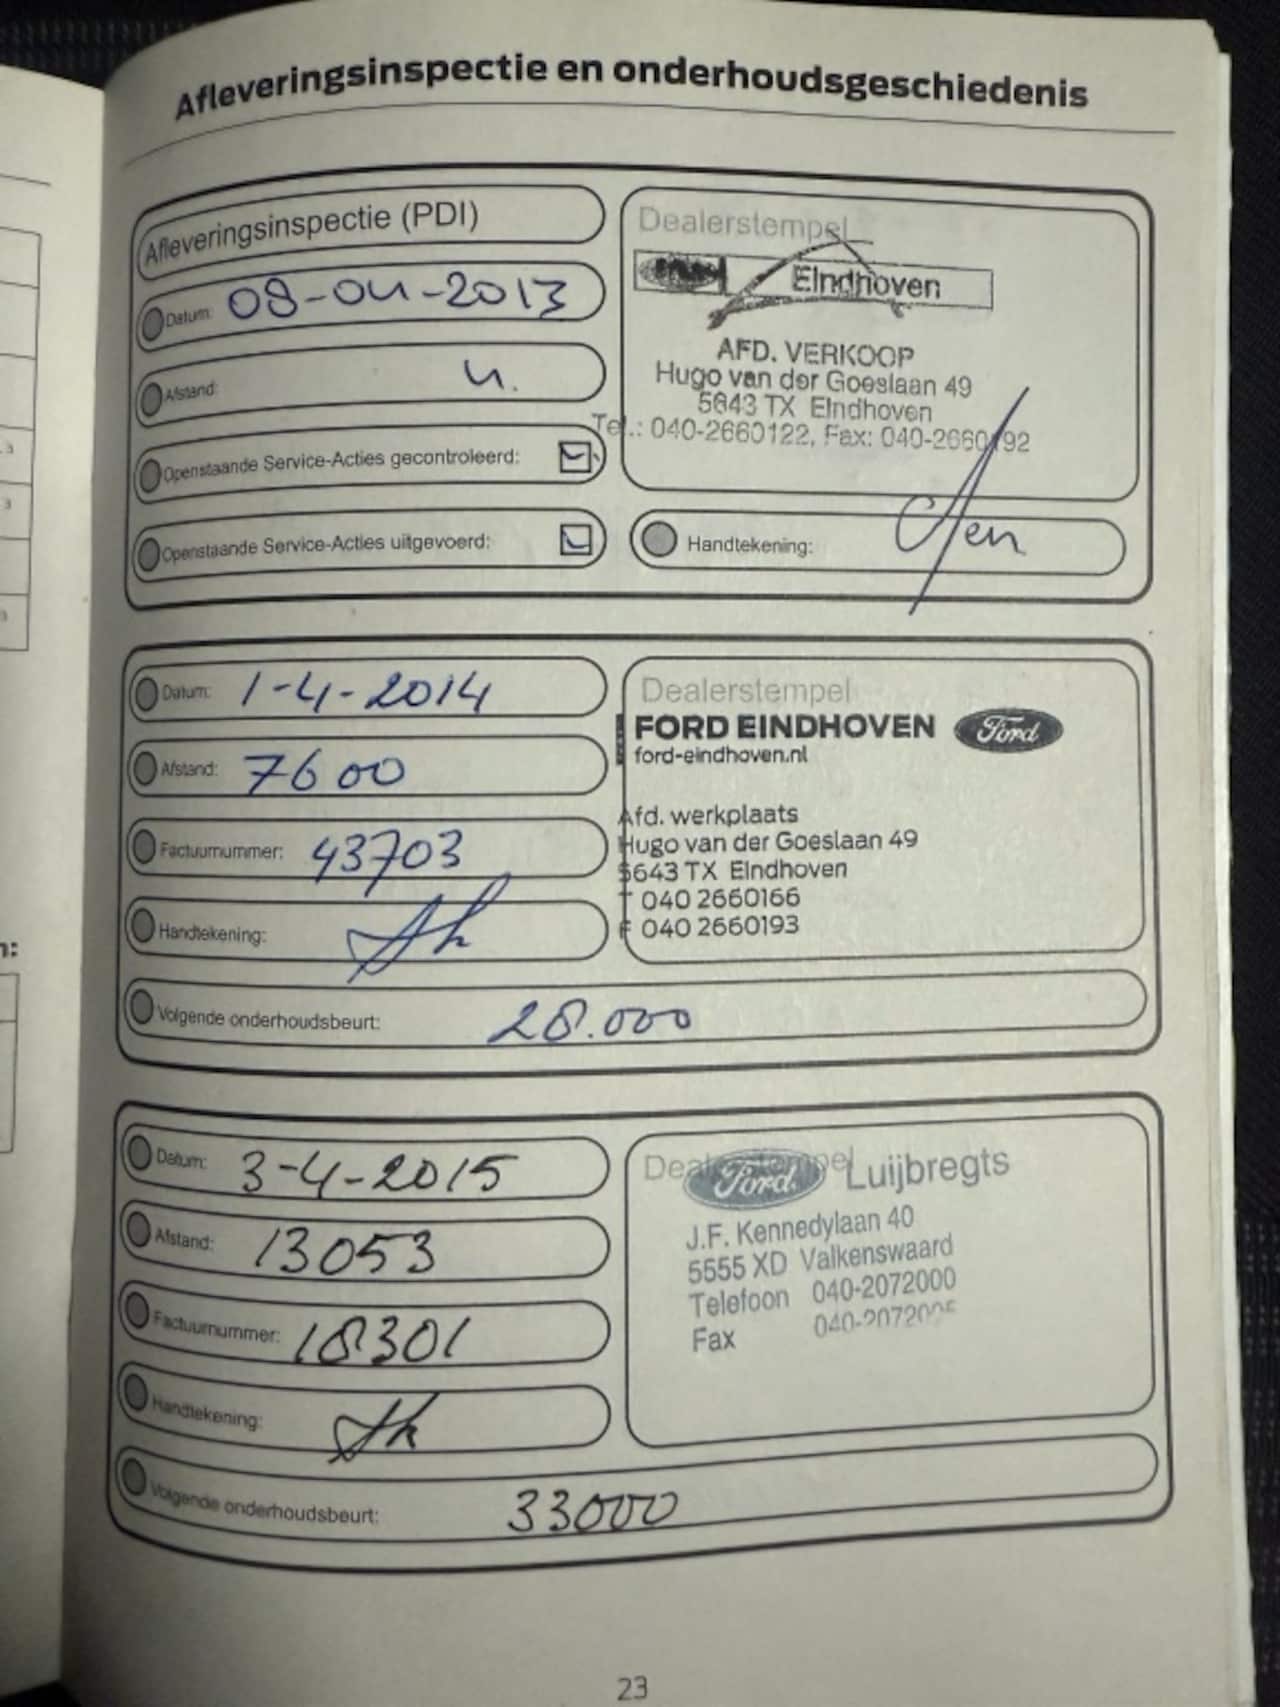 Afleveringsinspectie en onderhoudsgeschiedenis
Afleveringsinspectie (PDI)
Datum: 08-04-2013
Afstand: 4.
Openstaande Service-Acties gecontroleerd:
Openstaande Service-Acties uitgevoerd:
Dealerstempel
Eindhoven
AFD. VERKOOP
Hugo van der Goeslaan 49
5643 TX Eindhoven
Tel.: 040-2660122, Fax: 040-2660192
Handtekening:
Datum: 1-4-2014
Afstand: 7600
Factuurnummer: 43703
Handtekening:
Volgende onderhoudsbeurt: 28.000
Dealerstempel
FORD EINDHOVEN Ford
ford-eindhoven.nl
Afd. werkplaats
Hugo van der Goeslaan 49
5643 TX Eindhoven
T 040 2660166
F 040 2660193
Datum: 3-4-2015
Afstand: 13053
Factuurnummer: 18301
Handtekening:
Volgende onderhoudsbeurt: 33000
Dealerstempel
Ford Luijbregts
J.F. Kennedylaan 40
5555 XD Valkenswaard
Telefoon 040-2072000
Fax
23